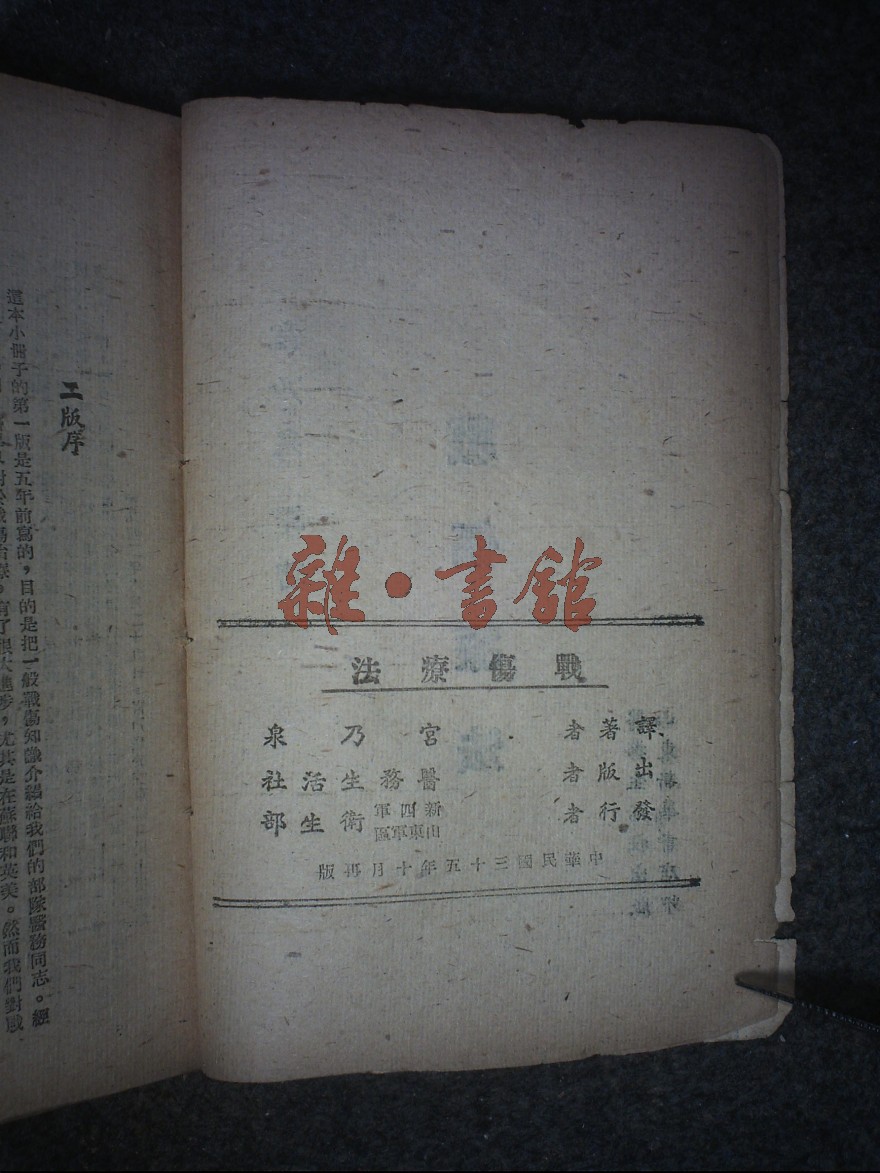 雜·書館
戰傷療法
譯著者 宮乃泉
出版者 醫務生活社
發行者 新四軍山東軍區衛生部
中華民國三十五年十月再版
二版序
這本小冊子的第一版是五年前寫的，目的是把一般戰傷知識介紹給我們的部隊醫務同志。經
對於戰傷治療，有了很大進步，尤其是在蘇聯和英美。然而我們對戰